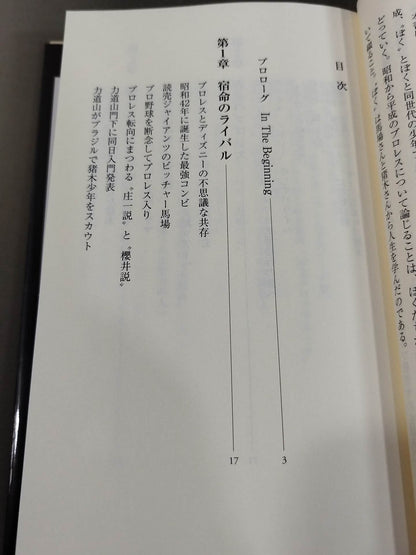 成、〝ぼく〟とぼくと同世代の少年
どっていく。昭和から平成のプロレスについて論じることは、ぼくた
いて綴ること。〝ぼく〟は馬場さんと猪木さんから人生を学んだのである。
目次
プロローグ In The Beginning 3
第1章 宿命のライバル 17
プロレスとディズニーの不思議な共存
昭和42年に誕生した最強コンビ
読売ジャイアンツのピッチャー馬場
プロ野球を断念してプロレス入り
プロレス転向にまつわる〝庄一説〟と〝櫻井説〟
力道山門下に同日入門発表
力道山がブラジルで猪木少年をスカウト